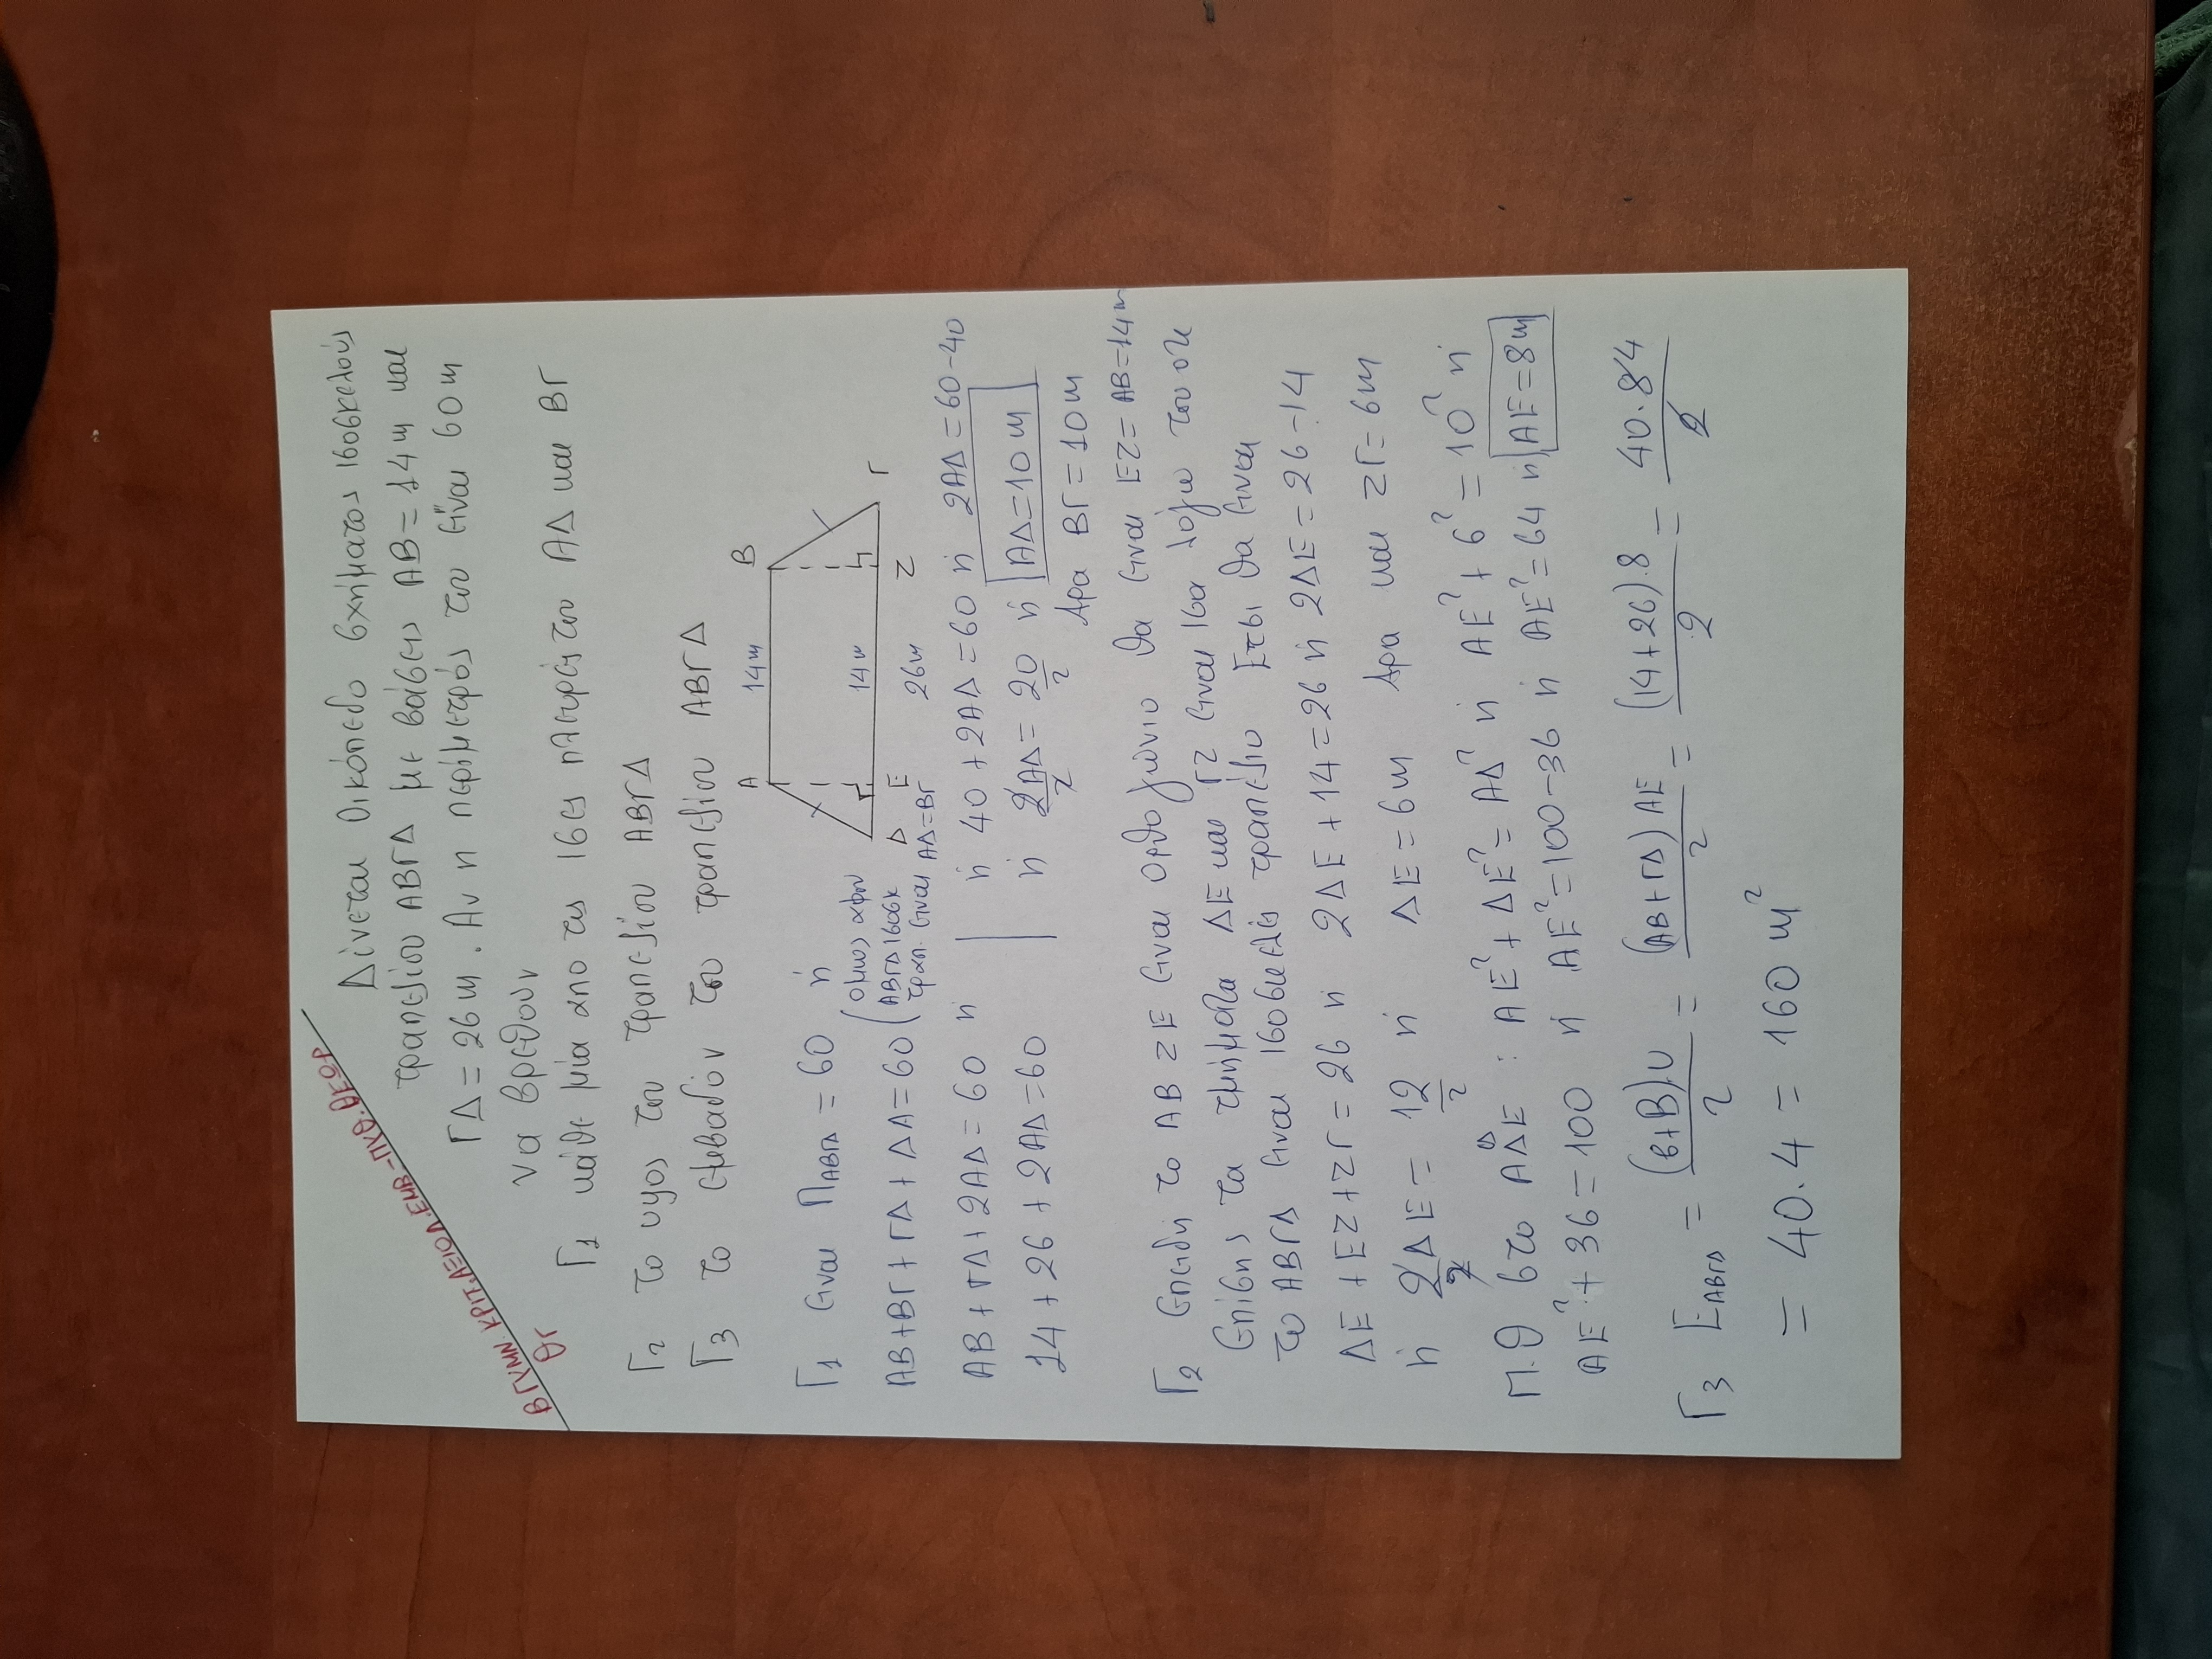 Β ΓΥΜΝ. ΚΡΙΤ. ΑΞΙΟΛ. ΕΜΒ - ΠΥΘ. ΘΕΩΡ
Θг
Δίνεται οικόπεδο σχήματος ισοσκελούς
τραπεζίου ΑΒΓΔ με βάσεις ΑΒ=14m και
ΓΔ=26m. Αν η περίμετρός του είναι 60m
να βρεθούν
Γ1 κάθε μία απο τις ίσες πλευρές του ΑΔ και ΒΓ
Γ2 το υψος του τραπεζίου ΑΒΓΔ
Γ3 το εμβαδόν του τραπεζίου ΑΒΓΔ
Α 14m Β
14m
Δ Ε Ζ Γ
26m
Γ1 ειναι ΠΑΒΓΔ = 60 ή
ΑΒ+ΒΓ+ΓΔ+ΔΑ=60 (ομως αφου ΑΒΓΔ ισοσκ τραπ. ειναι ΑΔ=ΒΓ
ΑΒ+ΓΔ+2ΑΔ=60 ή
14+26+2ΑΔ=60
ή 40+2ΑΔ=60 ή 2ΑΔ=60-40
ή 2ΑΔ/2 = 20/2 ή ΑΔ=10m
Αρα ΒΓ=10m
Γ2 επειδη το ΑΒΖΕ ειναι ορθογώνιο θα ειναι ΕΖ=ΑΒ=14m
επίσης τα τμήματα ΔΕ και ΓΖ ειναι ισα λόγω του οτι
το ΑΒΓΔ ειναι ισοσκελές τραπέζιο Ετσι θα ειναι
ΔΕ+ΕΖ+ΖΓ=26 ή 2ΔΕ+14=26 ή 2ΔΕ=26-14
ή 2ΔΕ/2 = 12/2 ή ΔΕ=6m Αρα και ΖΓ=6m
Π.Θ στο ΑΔΕ : ΑΕ²+ΔΕ²=ΑΔ² ή ΑΕ²+6²=10² ή
ΑΕ²+36=100 ή ΑΕ²=100-36 ή ΑΕ²=64 ή ΑΕ=8m
Γ3 ΕΑΒΓΔ = (β+Β).υ/2 = (ΑΒ+ΓΔ)ΑΕ/2 = (14+26).8/2 = 40.8 4/2
= 40.4 = 160 m²